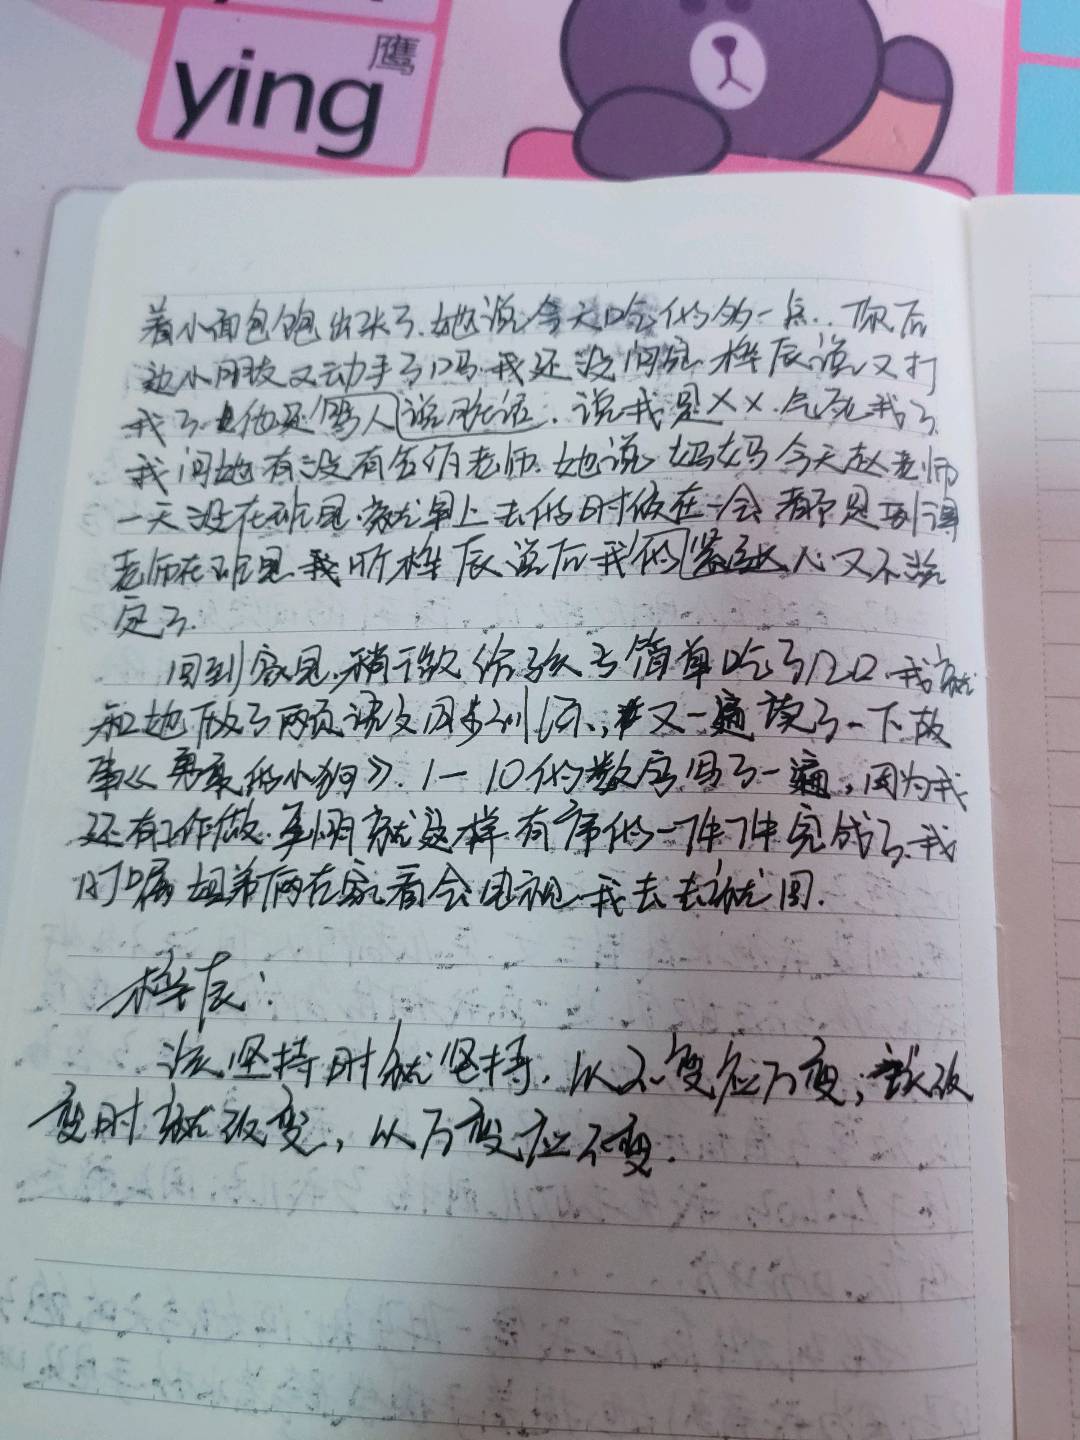 鹰
ying
着小面包饱出来了.她说今天吃的多一点..你后
边小朋友又动手了吗.我还没问完.桦辰说.又打
我了.他还骂人说脏话.说我是××.气死我了
我问她有没有告诉老师.她说妈妈今天赵老师
一天没在班里.就早上去的时候在一会.都是刘得
老师在班里.我听桦辰说后我的紧张心又不淡
定了.
回到家里.稍微给孩子简单吃了几口.我就
和她做了两页语文同步训练.,又一遍读了一下故
事《勇敢的小狗》.1—10的数字写了一遍,因为我
还有工作做.事情就这样有序的一件件完成了.我
叮嘱姐弟俩在家看会电视.我去去就回.
桦辰:
该坚持时就坚持,以不变应万变;该改
变时就改变,以万变应不变.